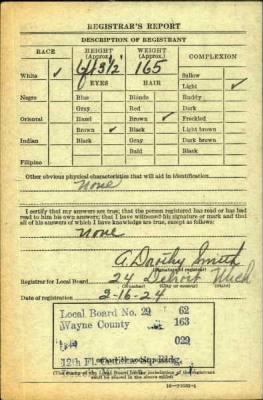 REGISTRAR'S REPORT
DESCRIPTION OF REGISTRANT
RACE HEIGHT (Approx.) WEIGHT (Approx.) COMPLEXION
165
White ✓ Sallow
EYES HAIR Light ✓
Negro Blue Blonde Ruddy
Gray Red Dark
Oriental Hazel Brown ✓ Freckled
Brown ✓ Black Light brown
Indian Black Gray Dark brown
Bald Black
Filipino
Other obvious physical characteristics that will aid in identification
None
I certify that my answers are true; that the person registered has read or has had
read to him his own answers; that I have witnessed his signature or mark and that
all of his answers of which I have knowledge are true, except as follows:
None
Smith
(Signature of registrar)
Registrar for Local Board 24 Detroit Mich
(Number) (City or county)
Date of registration 2-16-
Local Board No. 29 62
Wayne County 163
029
12th Fl. Bldg.
(The stamp of the Local Board
shall be placed in the above space.)